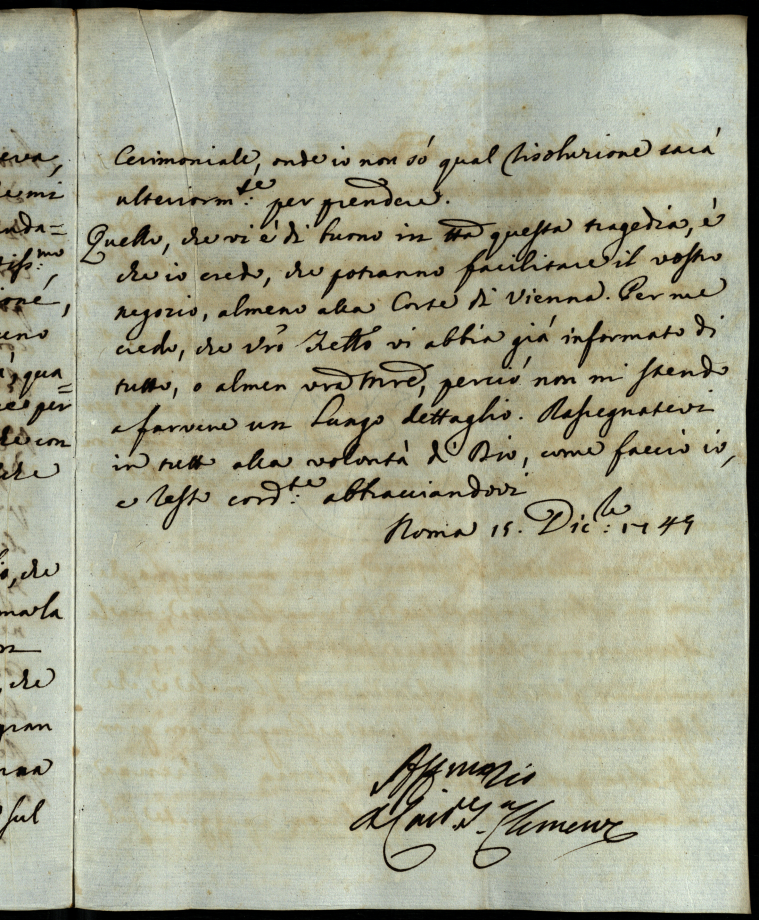 eva,
e mi
nda=
tiss:mo
ione,
eno
qua=
e per
de con
che
o, che
marla
che
gran
nna
sul
Cerimoniale, onde io non só qual risoluzione sará
ulteriorm:te per prendere.
Quello, che vi é di buono in tta questa tragedia, é
che io credo, che potranno facilitare il vostro
negozio, almeno alla Corte di Vienna. Per me
credo, che vro Frello vi abbia giá informato di
tutto, o almen vra Mre, perció non mi stendo
a farvene un lungo dettaglio. Rassegnatevi
in tutto alla volontá di Dio, come faccio io,
e resto cord:te abbracciandovi
Roma 15. Dic:le 1749
Clemente